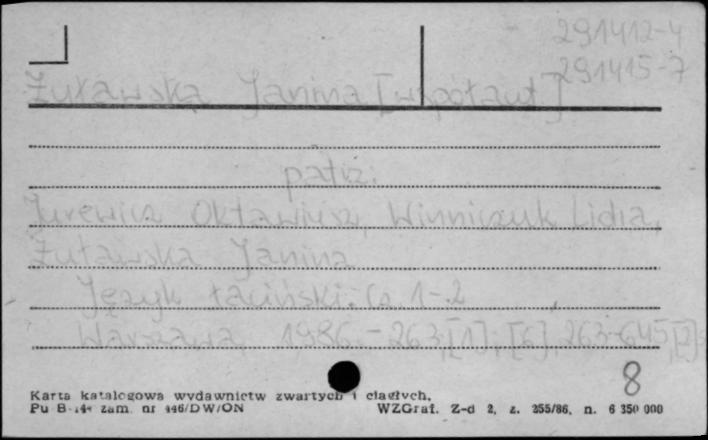 291412-4
291415-7
Żuławska Janina [współaut]
patrz:
Jurewicz Oktawiusz, Winniczuk Lidia,
Żuławska Janina
Język łaciński. Cz. 1-2
Warszawa, 1986. - 263,[1]; [6], 263-645,[2]s
8
Karta katalogowa wydawnictw zwartych i ciągłych.
Pu B-14 zam. nr 446/DW/ON WZGraf. Z-d 2, z. 255/86, n. 6 350 000